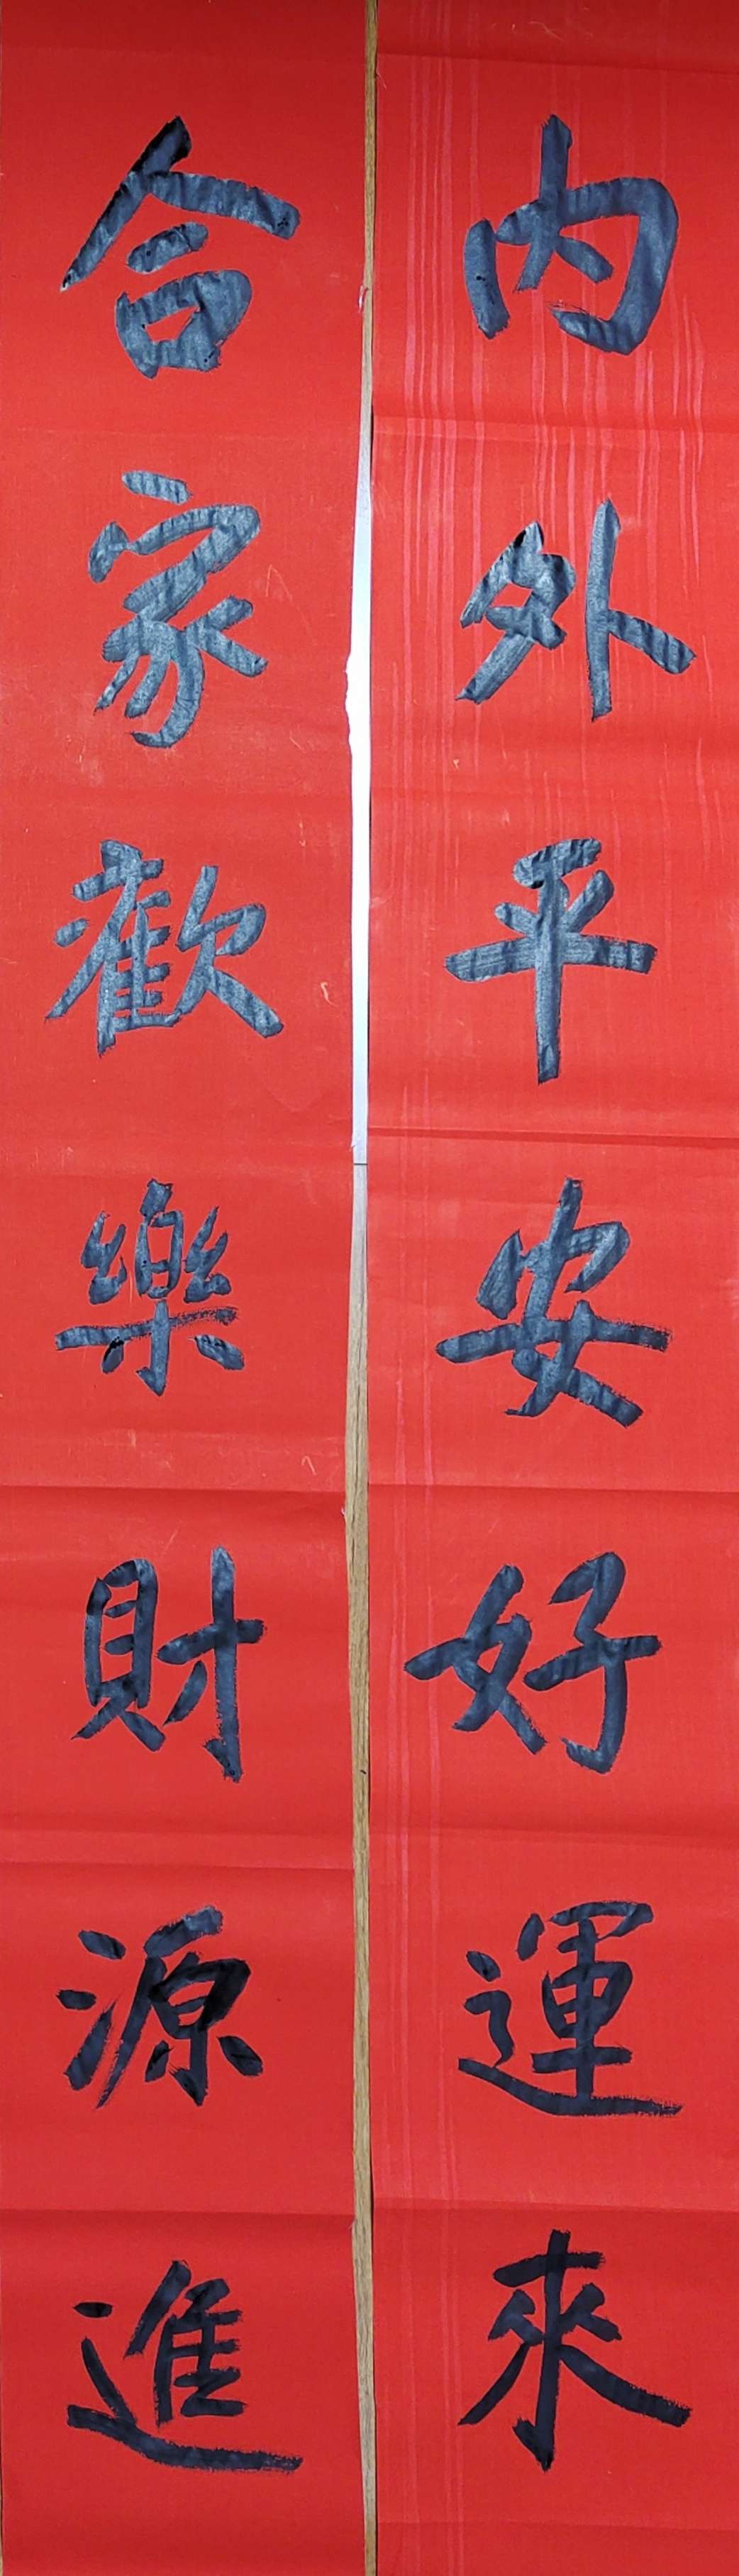 内外平安好運來
合家歡樂財源進